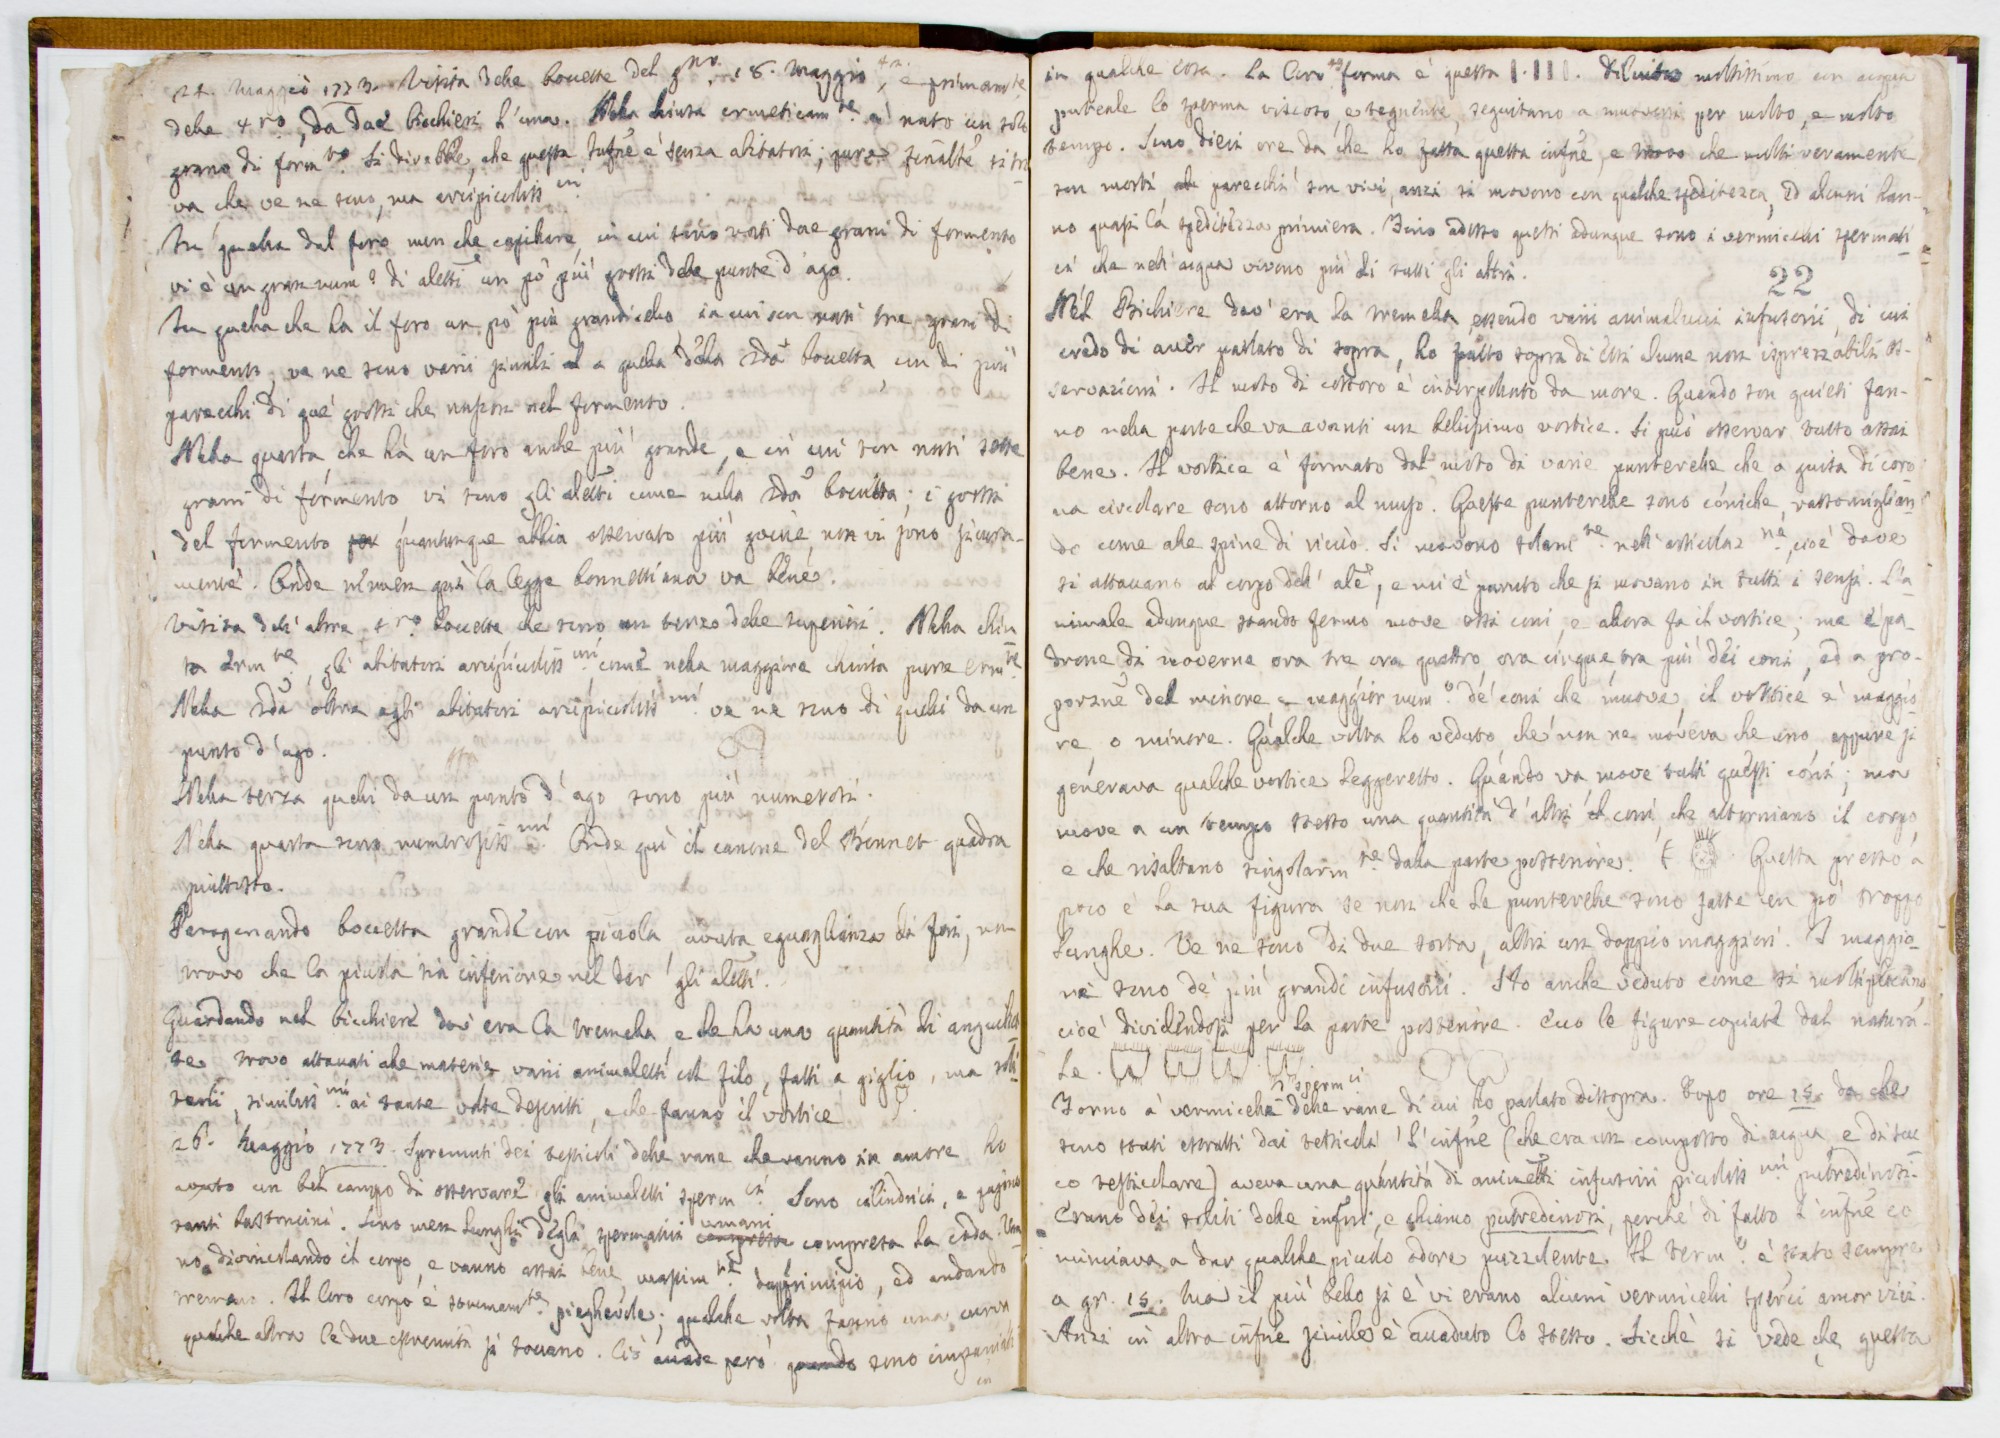 21. Maggio 1773. Visita delle boccette del gno. 18. Maggio, e primamte
delle 4ro, da due bicchieri l'una. Nella chiusa ermeticamte è nato un solo
grano di formto. Si direbbe, che questa infne è senza abitatori; pure si tro
va che ve ne sono, ma arcipicoliss mi
In quella dal foro men che capillare, in cui sono nati due grani di formento
vi è un gran numo di aletti un pò più grossi delle punte d'ago.
In quella che ha il foro un pò più grandicello, in cui son nati tre grani di
formento, ve ne sono varii simili a quella della 2da boccetta, con di più
parecchi di que' grossi che nascon nel formento.
Nella quarta, che hà un foro anche più grande, e in cui son nati sette
grani di formento vi sono gli aletti come nella 2da boccetta; i grossi
del formento quantunque abbia osservato più goccie, non vi sono sicura-
mente. Onde nemmen quì la legge bonnettiana va bene.
Visita dell'altre 4ro boccette che sono un terzo delle superiori. Nella chiu
sa ermte, gli abitatori arcipicoliss mi, come nella maggiore chiusa pure ermte.
Nella 2da oltre agli abitatori arcipicoliss mi ve ne sono di quelli da un
punto d'ago.
Nella terza quelli da un punto d'ago sono più numerosi.
Nella quarta sono numerosiss mi. Onde quì il canone del Bonnet quadra
piuttosto.
Paragonando boccetta grande con piccola, avuta eguaglianza di fori, non
trovo che la piccola sia inferiore nel dar gli aletti.
Guardando nel bicchiere dov'era la tremella e che ha una quantità di anguillet
te trovo attaccati alle materie varii animaletti col filo, fatti a giglio, ma soli
tarii, similiss mi ai tante volte descritti, e che fanno il vortice.
26. Maggio 1773. Spremuti dei testicoli delle rane che vanno in amore ho
avuto un bel campo di osservare gli animaletti sperm ci. Sono cilindrici, e pajono
tanti bastoncini. Sono men lunghi degli spermatici umani compresa la coda. Van
no divincolando il corpo, e vanno assai bene massimte dapprincipio, ed andando
tremano. Il loro corpo è sommamte pieghevole; qualche volta fanno una curva
qualche altra le due estremità si toccano. Ciò accade però quando sono impaniati
in
in qualche cosa. La loro forma è questa. Diluito moltissimo con acqua
puteale lo sperma viscoso, e tegnente, seguitano a muoversi per molto, e molto
tempo. Sono dieci ore da che ho fatta questa infne, e trovo che molti veramente
son morti, parecchi son vivi, anzi si movono con qualche speditezza, ed alcuni han-
no quasi la speditezza primiera. Fino adesso questi adunque sono i vermicelli spermati
ci che nell'acqua vivono più di tutti gli altri.
22
Nel Bichiere dov'era la tremella, essendo varii animalucci infusorii, di cui
credo di aver parlato di sopra, ho fatto sopra di essi alcune non isprezzabili os-
servazioni. Il moto di costoro è interpolato da more. Quando son quieti fan-
no nella parte che va avanti un bellissimo vortice. Si può osservar tutto assai
bene. Il vortice è formato dal moto di varie punterelle che a guisa di coro
na circolare sono attorno al muso. Queste punterelle sono coniche, rassomiglian
do come alle spine di riccio. Si movono solamte nell'articolaz ne, cioè dove
si attaccano al corpo dell'ale, e mi è paruto che si movano in tutti i sensi. L'a
nimale adunque stando fermo move essi coni, e allora fa il vortice; ma è pa-
drone di moverne ora tre ora quattro ora cinque ora più dei coni, ed a pro-
porzne del minore e maggior numo de' coni che muove, il vortice è maggio
re, o minore. Qualche volta ho veduto, che non ne moveva che uno, eppure si
generava qualche vortice leggeretto. Quando va, move tutti questi coni; ma
move a un tempo stesso una quantità d'altri coni, che attorniano il corpo,
e che risaltano singolarmte dalla parte posteriore. Questa presso a
poco è la sua figura se non che le punterelle sono fatte un pò troppo
lunghe. Ve ne sono di due sorta, altri un doppio maggiori. I maggio-
ri sono de' più grandi infusorii. Ho anche veduto come si moltiplicano,
cioè dividendosi per la parte posteriore. Ecco le figure copiate dal natura-
le.
Torno a' vermicelli spermci delle rane di cui ho parlato di sopra. Dopo ore 18. da che
sono stati estratti dai testicoli l'infne (che era un composto di acqua e di suc
co testicolare) aveva una quantità di animetti infusorii picoliss mi putredinosi.
Erano dei soliti delle infni, e chiamo putredinosi, perchè di fatto l'infne co
minciava a dar qualche picciolo odore puzzolente. Il termo è stato sempre
a gr. 15. Ma il più bello si è vi erano alcuni vermicelli spermci ancor vivi.
Anzi in altra infne simile è accaduto lo stesso. Sicchè si vede che questa